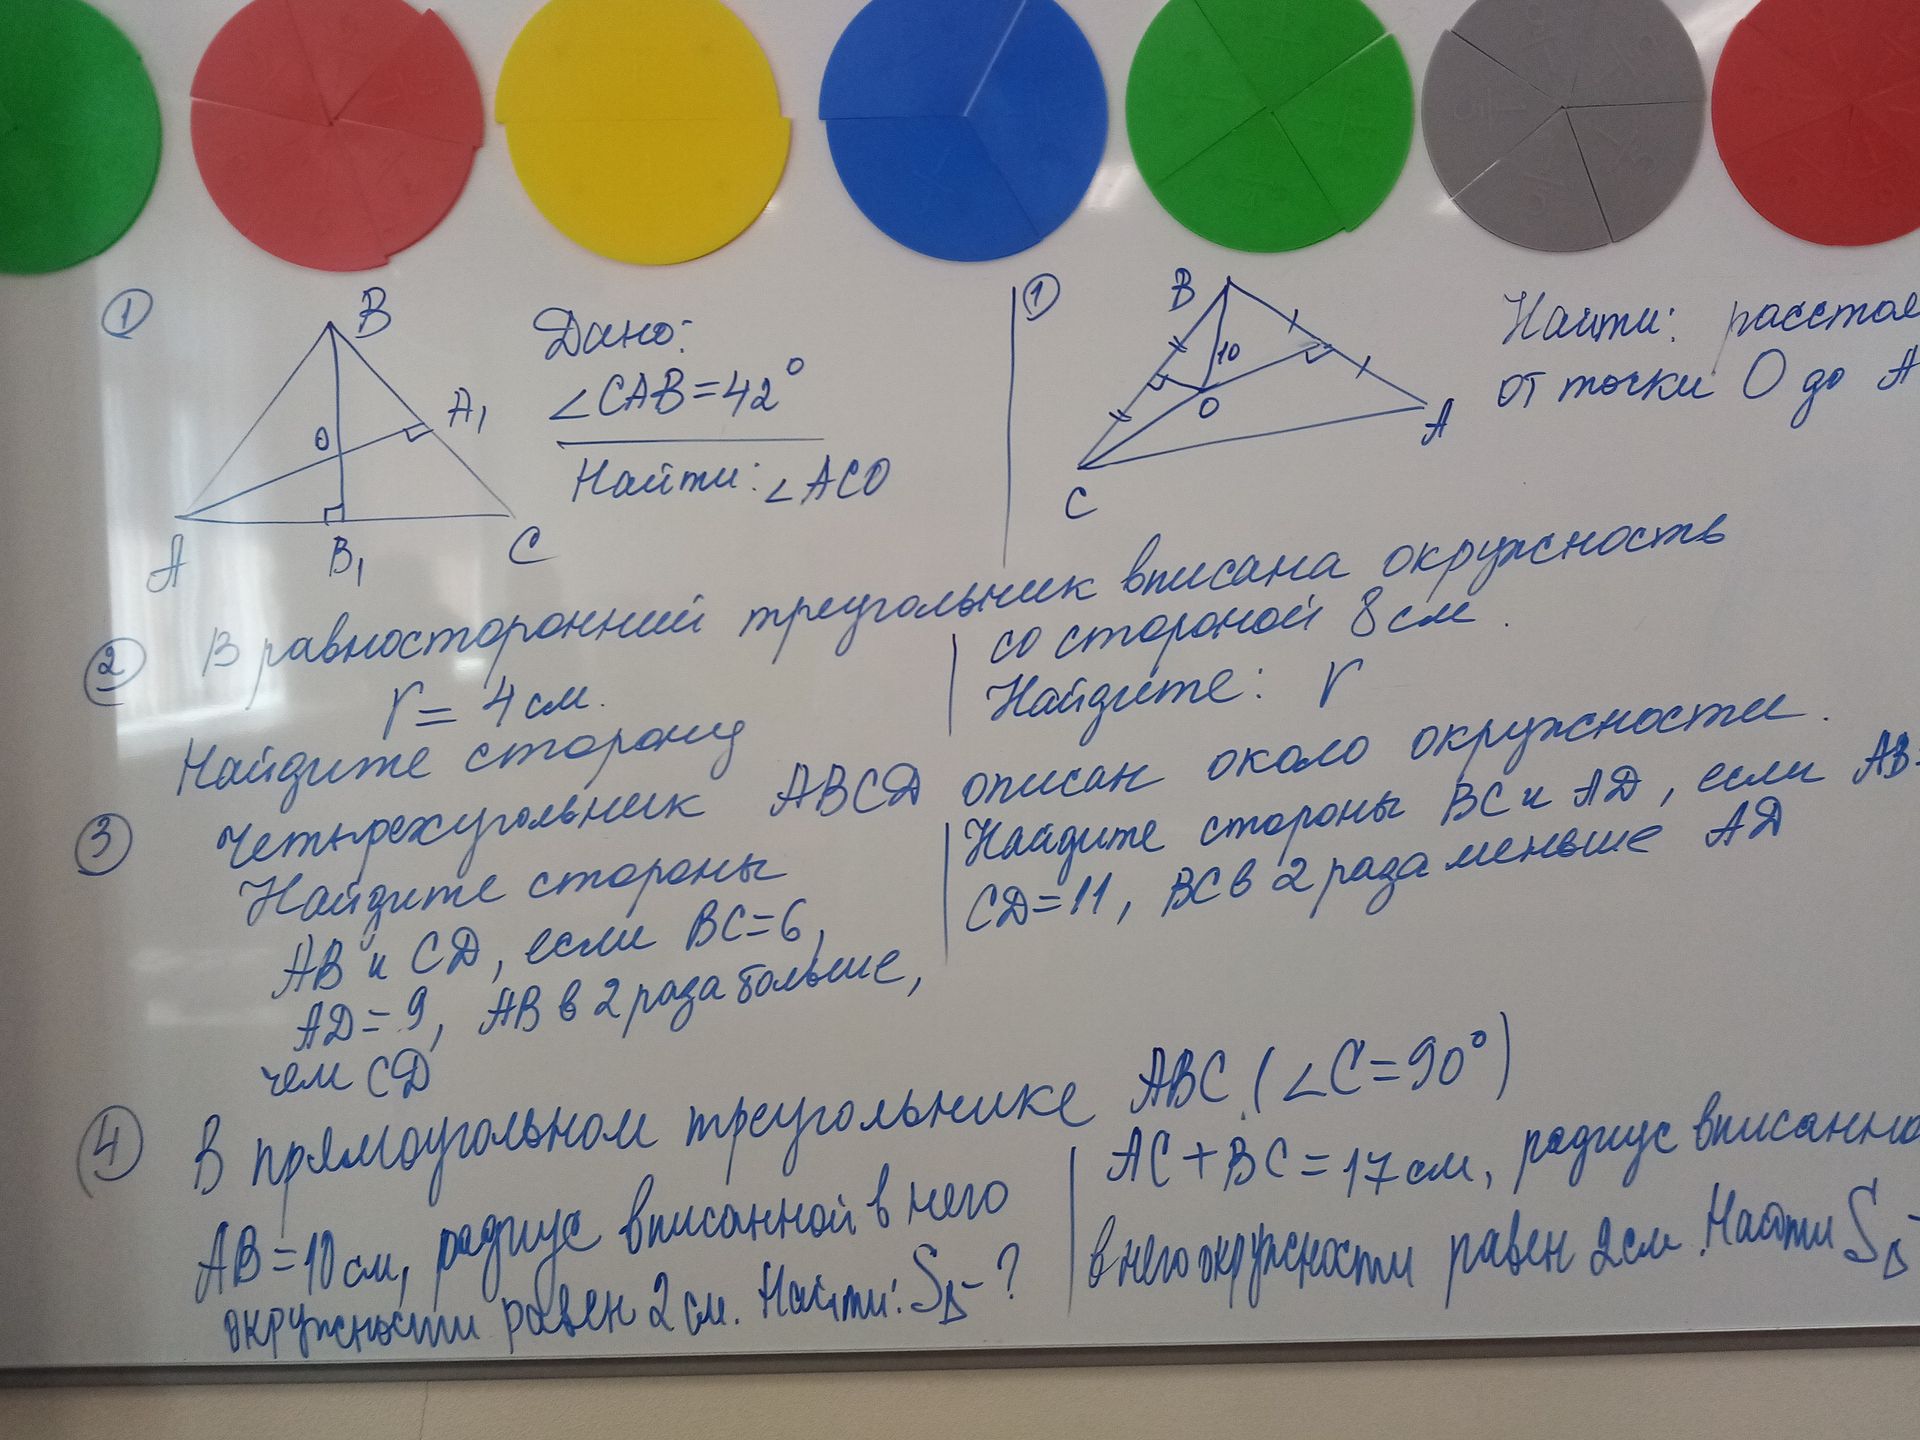 ①
B
A₁
O
A
B₁
C
Дано:
∠CAB=42°
Найти: ∠ACO
①
B
10
O
A
C
Найти:
от точки O до
② В равносторонний треугольник вписана окружность
r = 4 см.
Найдите сторону
со стороной 8 см.
Найдите: r
③ Четырехугольник ABCD описан около окружности.
Найдите стороны
AB и CD, если BC=6,
AD=9, AB в 2 раза больше,
чем CD
Найдите стороны BC и AD, если AB
CD=11, BC в 2 раза меньше AD
④ В прямоугольном треугольнике ABC (∠C=90°)
AB=10 см, радиус вписанной в него
окружности равен 2 см. Найти: S△-?
AC+BC=17 см, радиус
в него окружности равен 2 см. Найти S△-